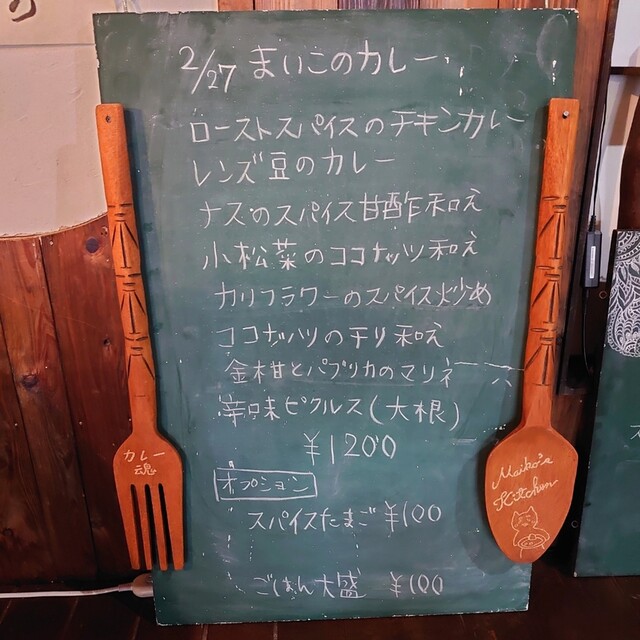 の
2/27 まいこのカレー
ローストスパイスのチキンカレー
レンズ豆のカレー
ナスのスパイス甘酢和え
小松菜のココナッツ和え
カリフラワーのスパイス炒め
ココナッツのチリ和え
金柑とパプリカのマリネ
辛味ピクルス(大根)
¥1200
オプション
スパイスたまご ¥100
ごはん大盛 ¥100
カレー
魂
Maiko's
Kitchen